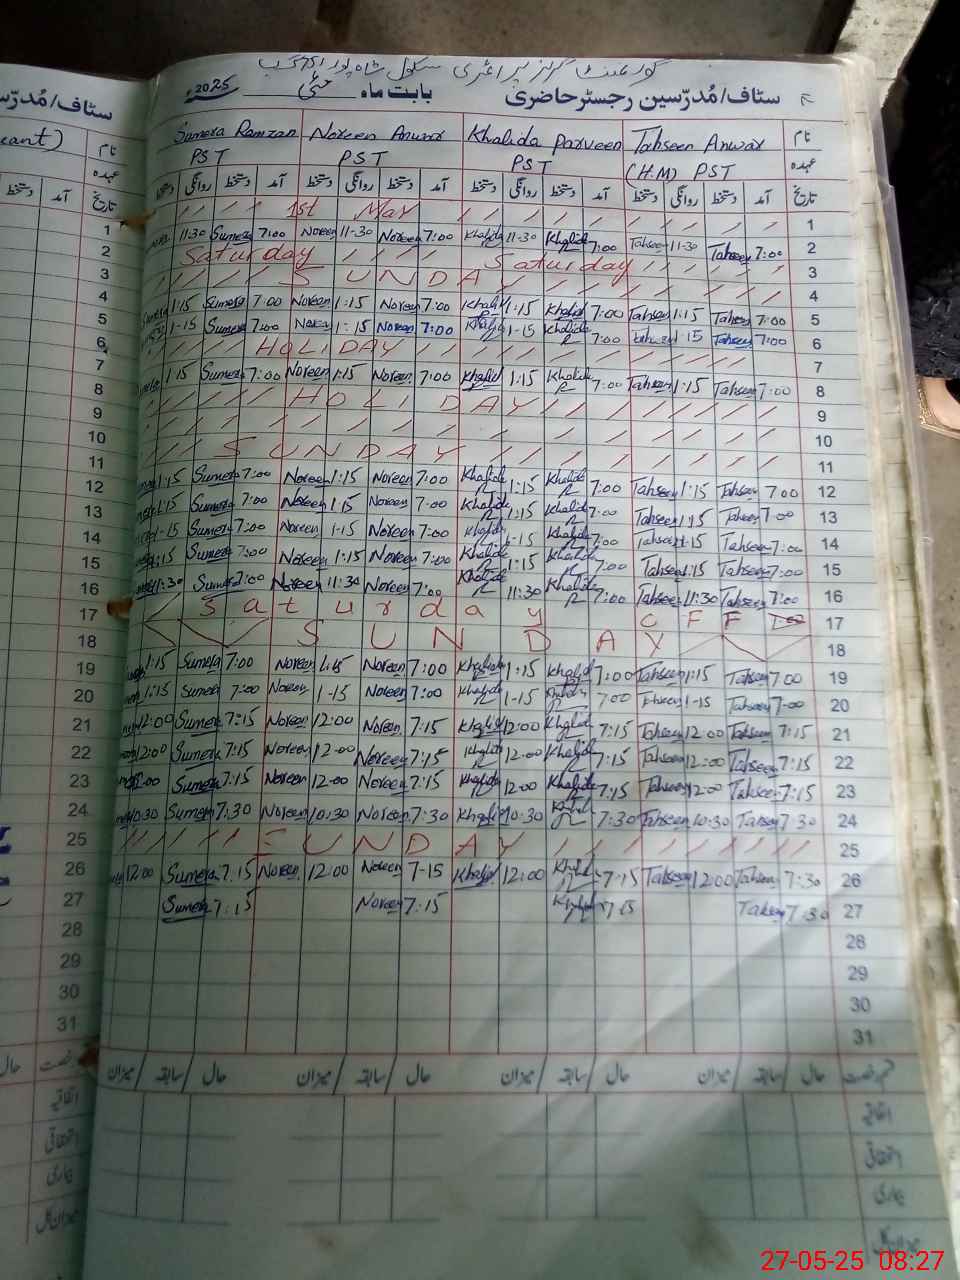 گورنمنٹ گرلز پرائمری سکول شاہ پور
سٹاف/مُدرّسین رجسٹر حاضری بابت ماہ مئی 2025
سٹاف/مُدرّس
نام Tahseen Anwar Khalida Parveen Noreen Anwar Sumera Ramzan
cant) نام
عہدہ (H.M) PST PST PST PST
عہدہ
تاریخ آمد دستخط روانگی دستخط آمد دستخط روانگی دستخط آمد دستخط روانگی دستخط آمد دستخط روانگی دستخط
تاریخ آمد دستخط
1st May 1
11-30 Sumera 7:00 Noreen 11-30 Noreen 7:00 Khalida 11-30 Khalida 7:00 Tahseen 11-30 Tahseen 7:00 2
Saturday Saturday 3
SUNDAY 4
1:15 Sumera 7:00 Noreen 1:15 Noreen 7:00 Khalid 1:15 Khalid 7:00 Tahseen 1:15 Tahseen 7:00 5
1-15 Sumera 7:00 Noreen 1:15 Noreen 7:00 1-15 Khalida 7:00 Tahseen 1:15 Tahseen 7:00 6
HOLIDAY 7
1:15 Sumera 7:00 Noreen 1:15 Noreen 7:00 Khalid 1:15 Khalida 7:00 Tahseen 1:15 Tahseen 7:00 8
HOLIDAY 9
10
SUNDAY 11
1:15 Sumera 7:00 Noreen 1:15 Noreen 7:00 Khalida 1:15 Khalida 7:00 Tahseen 1:15 Tahseen 7:00 12
1:15 Sumera 7:00 Noreen 1:15 Noreen 7:00 Khalida 1:15 Khalida 7:00 Tahseen 1:15 Tahseen 7:00 13
1-15 Sumera 7:00 Noreen 1-15 Noreen 7:00 Khalida 1-15 Khalida 7:00 Tahseen 1:15 Tahseen 7:00 14
1:15 Sumera 7:00 Noreen 1:15 Noreen 7:00 Khalida 1:15 Khalida 7:00 Tahseen 1:15 Tahseen 7:00 15
11:30 Sumera 7:00 Noreen 11:30 Noreen 7:00 Khalida 11:30 Khalida 7:00 Tahseen 11:30 Tahseen 7:00 16
Saturday OFF 17
SUNDAY 18
1:15 Sumera 7:00 Noreen 1:15 Noreen 7:00 Khalida 1:15 Khalid 7:00 Tahseen 1:15 Tahseen 7:00 19
1:15 Sumera 7:00 Noreen 1-15 Noreen 7:00 Khalida 1-15 Khalida 7:00 Tahseen 1-15 Tahseen 7:00 20
12:00 Sumera 7:15 Noreen 12:00 Noreen 7:15 Khalid 12:00 Khalida 7:15 Tahseen 12:00 Tahseen 7:15 21
12:00 Sumera 7:15 Noreen 12:00 Noreen 7:15 Khalida 12:00 Khalida 7:15 Tahseen 12:00 Tahseen 7:15 22
12:00 Sumera 7:15 Noreen 12:00 Noreen 7:15 Khalida 12:00 Khalida 7:15 Tahseen 12:00 Tahseen 7:15 23
10:30 Sumera 7:30 Noreen 10:30 Noreen 7:30 Khalid 10:30 7:30 Tahseen 10:30 Tahseen 7:30 24
SUNDAY 25
12:00 Sumera 7:15 Noreen 12:00 Noreen 7-15 Khalid 12:00 Khalid 7:15 Tahseen 12:00 Tahseen 7:30 26
Sumera 7:15 Noreen 7:15 Khalid 7:15 Tahseen 7:30 27
28
29
30
31
1
2
3
4
5
6
7
8
9
10
11
12
13
14
15
16
17
18
19
20
21
22
23
24
25
26
27
28
29
30
31
قسم رخصت حال سابقہ میزان حال سابقہ میزان حال سابقہ میزان حال سابقہ میزان
رخصت حال
اتفاقیہ
استحقاقی
بیماری
میزان کل
اتفاقیہ
استحقاقی
بیماری
میزان کل
27-05-25 08:27